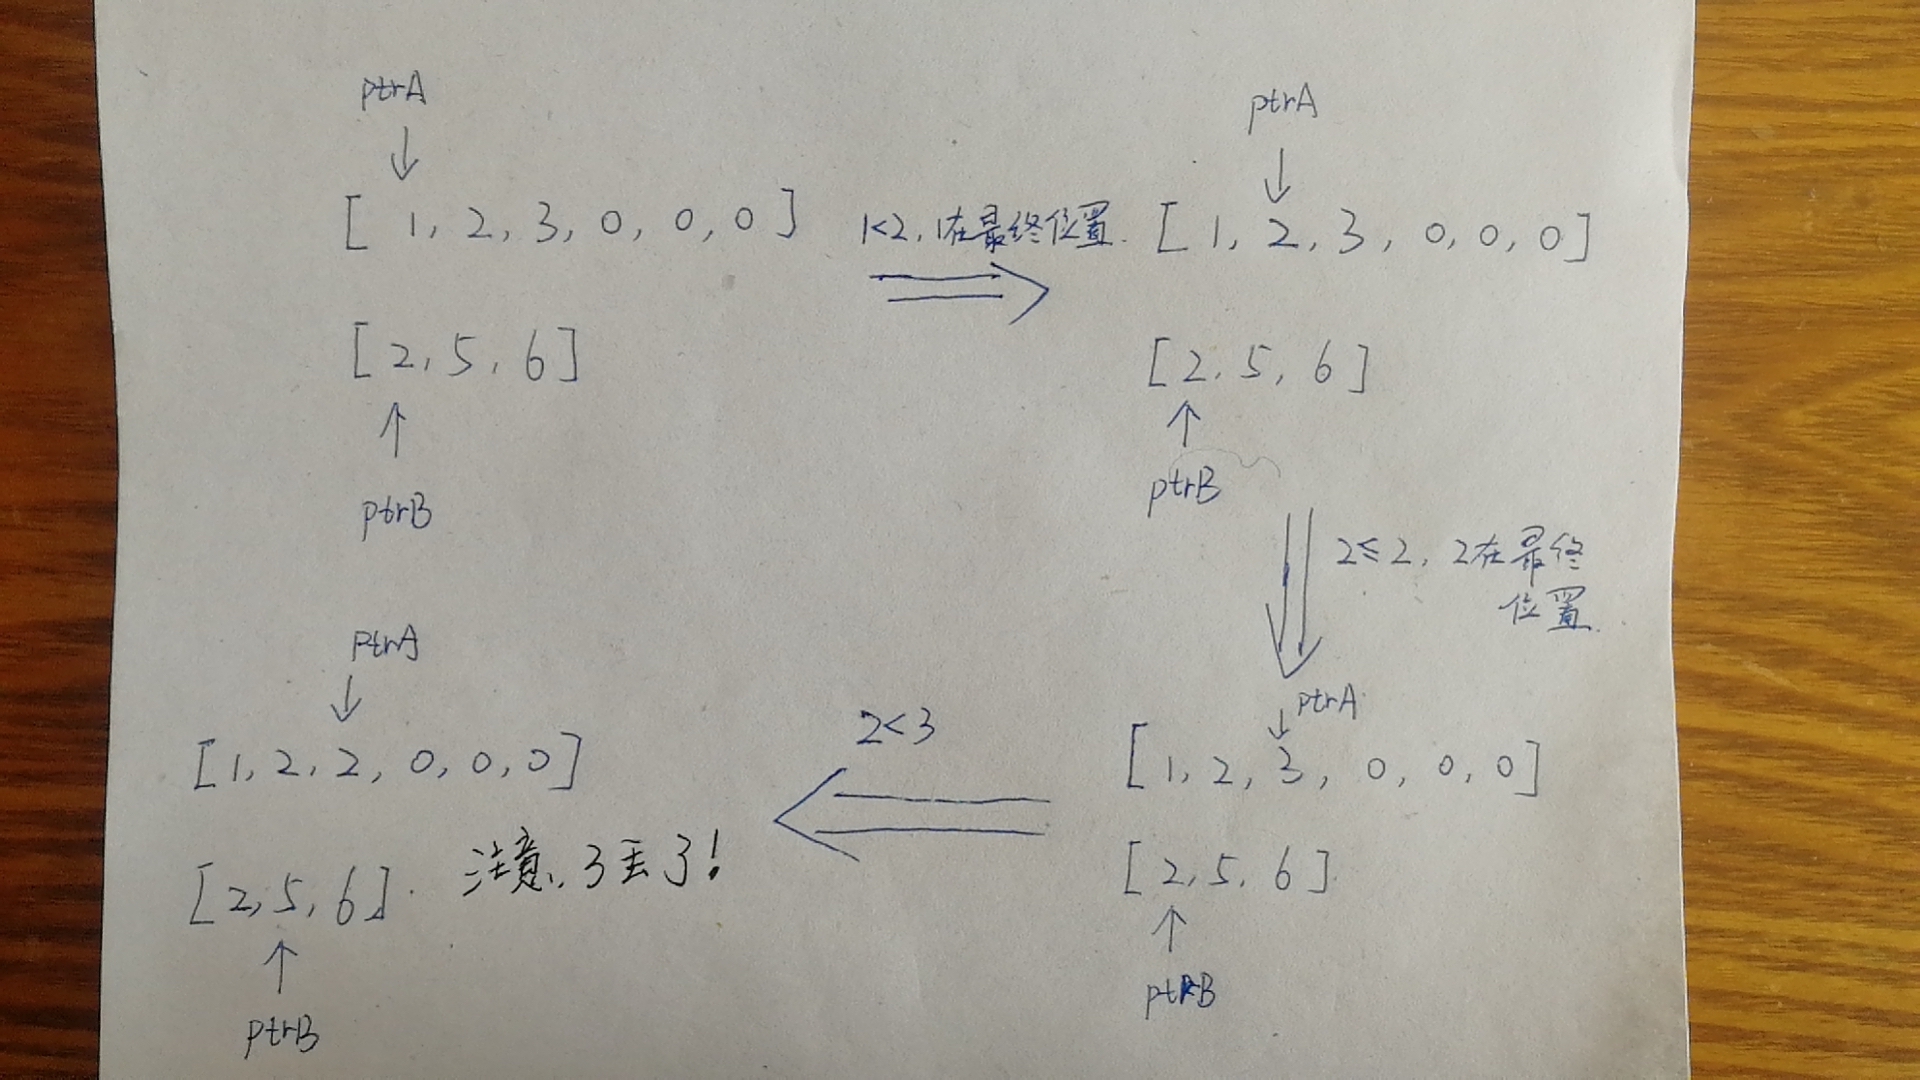 ptrA
[ 1, 2, 3, 0, 0, 0 ]
[ 2, 5, 6 ]
ptrB
1<2, 1在最终位置.
ptrA
[ 1, 2, 3, 0, 0, 0 ]
[ 2, 5, 6 ]
ptrB
2≤2, 2在最终
位置.
ptrA
[ 1, 2, 3, 0, 0, 0 ]
[ 2, 5, 6 ]
ptrB
2<3
ptrA
[ 1, 2, 2, 0, 0, 0 ]
[ 2, 5, 6 ].
注意, 3丢了!
ptrB